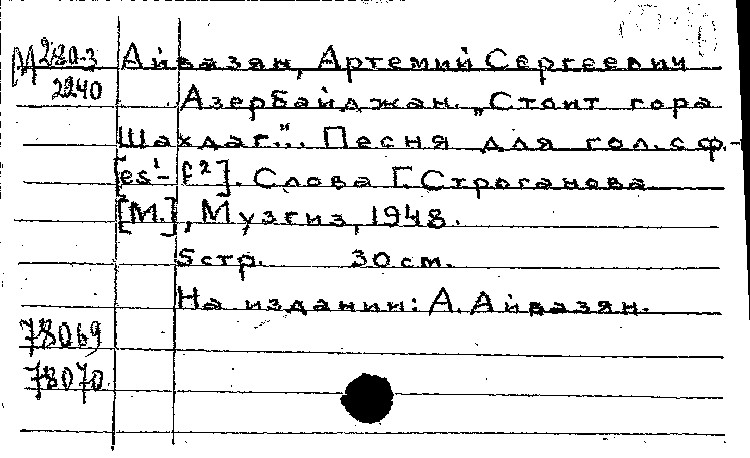 М 280-3 Айвазян, Артемий Сергеевич
2240 Азербайджан. „Стоит гора
Шахдаг."... Песня для гол. с ф.-
[es¹- f²]. Слова Г. Строганова
[М.], Музгиз, 1948.
5 стр. 30 см.
На издании: А. Айвазян.
78069
78070